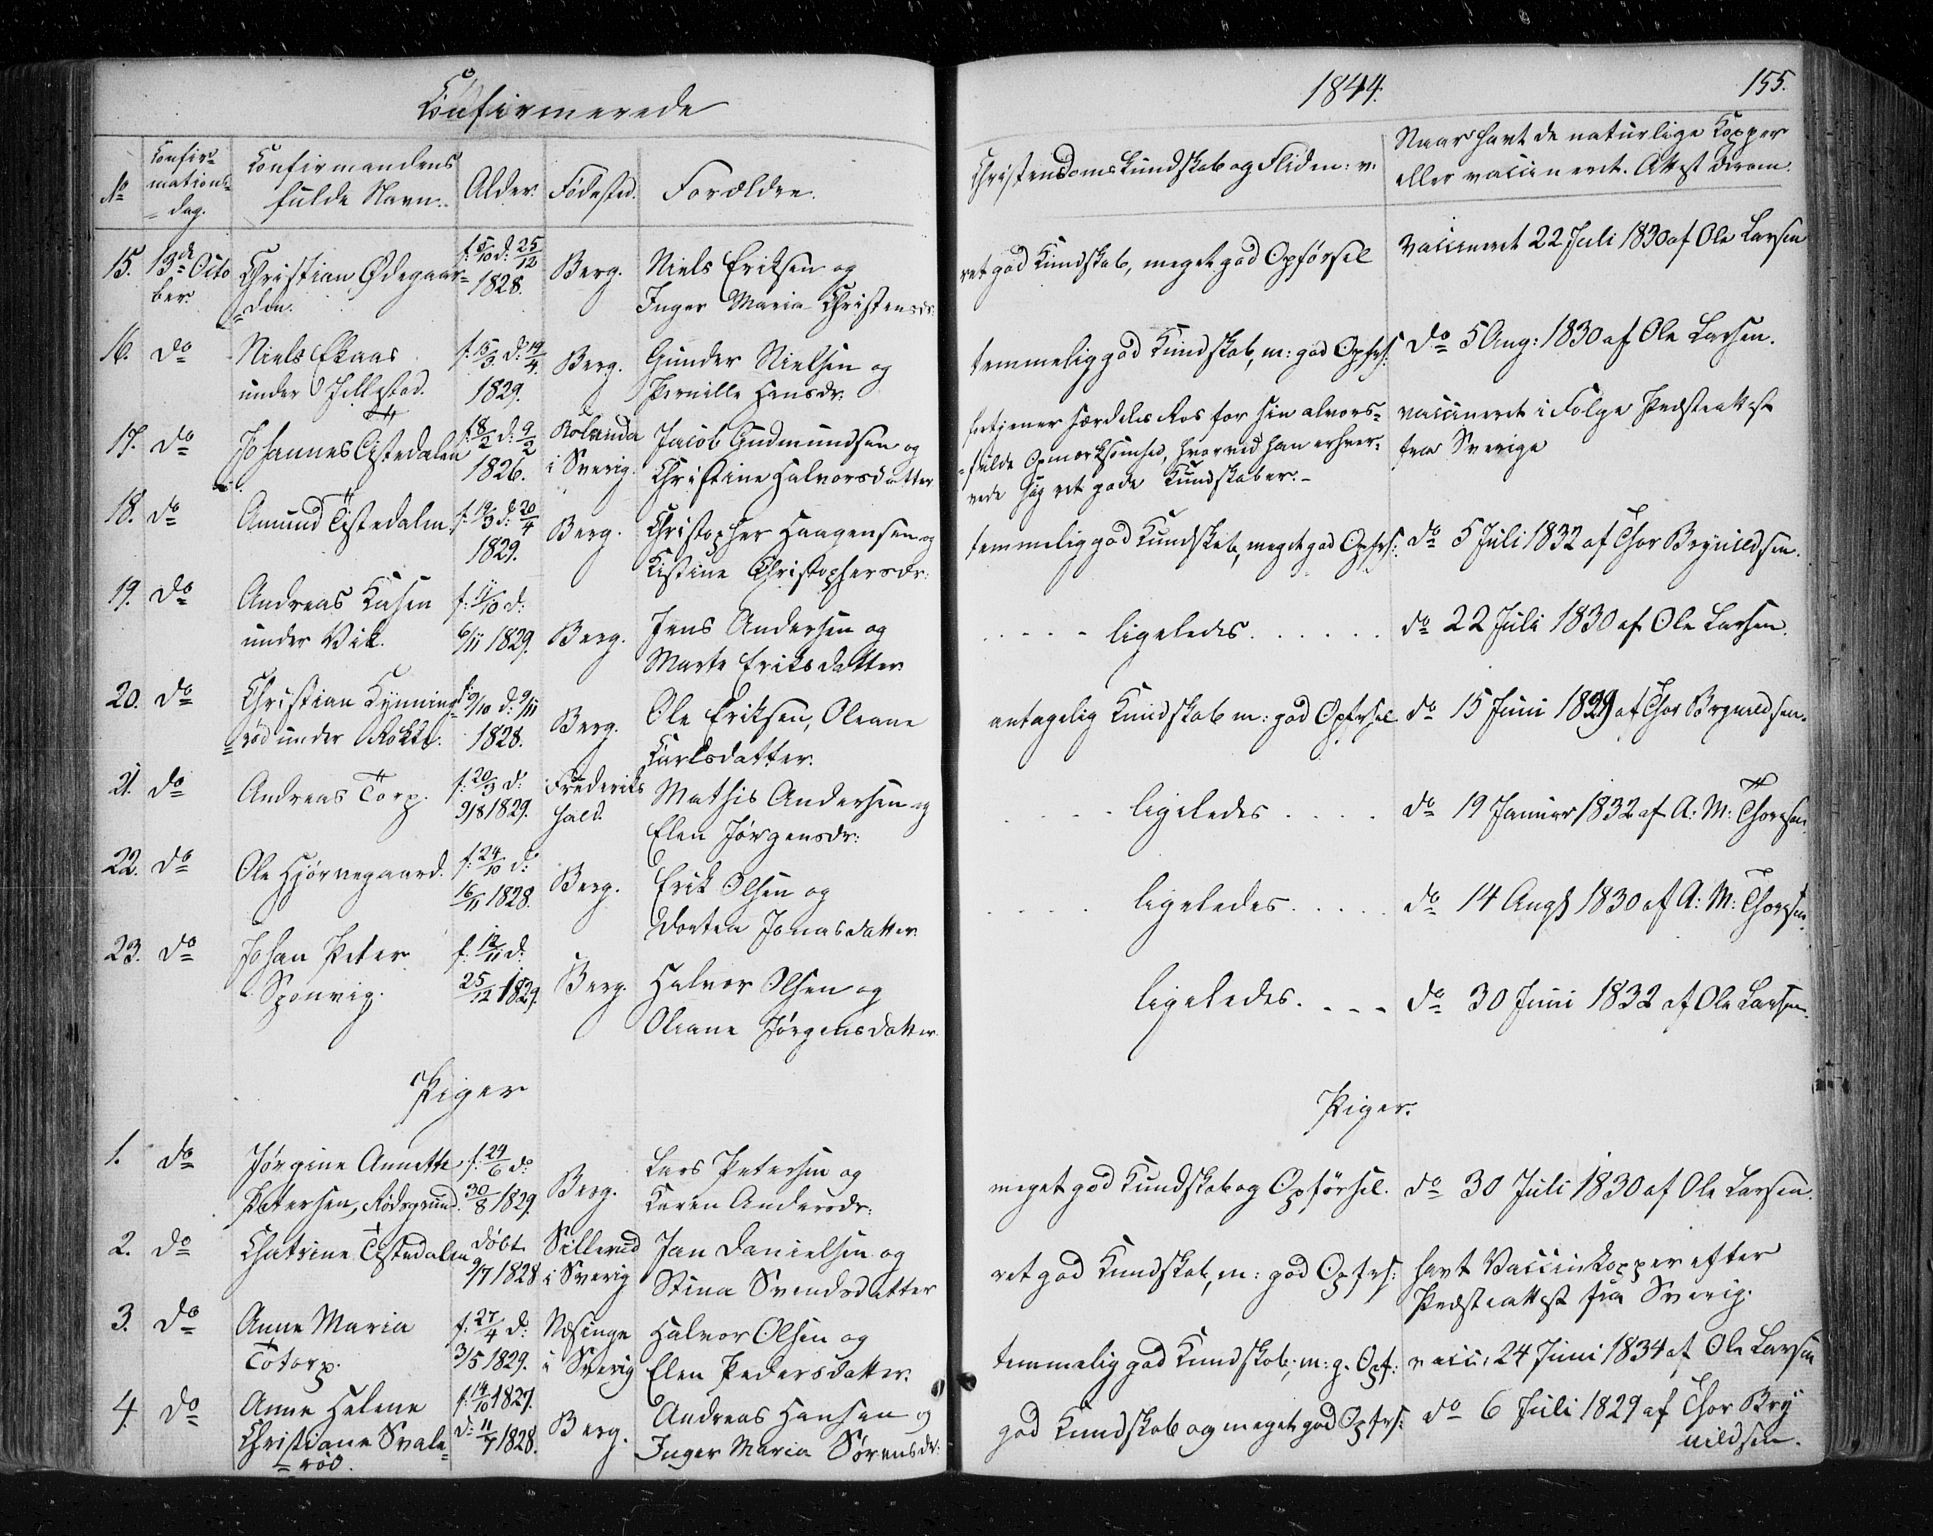 Confirmerede
No
Confir-
mations-
dag.
Confirmandens
fulde Navn.
Alder.
Fødested.
Forældre.
15.
13de Octo
ber.
Christian Ødegaar-
den.
f: 5/10 d: 25/12
1828.
Berg.
Niels Eriksen og
Inger Maria Christensdr.
16.
do
Niels Ekaas
under Jellestad.
f: 15/3 d: 19/4
1829.
Berg.
Gunder Nielsen og
Pernille Hansdr.
17.
do
Johannes Tistedalen
f: 8/2 d: 9/2
1826.
Rolanda
i Sverig.
Jacob Gudmundsen og
Christine Halvorsdatter
18.
do
Amund Tistedalen
f: 19/3 d: 20/4
1829.
Berg.
Christopher Haagensen og
Kistine Christophersdr:
19.
do
Andreas Kasen
under Vik.
f: 11/10 d:
6/11 1829.
Berg.
Jens Andersen og
Marte Eriksdatter
20.
do
Christian Kynnings-
rød under Rokke.
f: 9/10 d: 9/11
1828.
Berg.
Ole Eriksen, Oleane
Carlsdatter.
21.
do
Andreas Torp.
f: 20/3 d:
9/8 1829.
Frederiks
hald.
Mathis Andersen og
Elen Jørgensdr:
22.
do
Ole Hjørnegaard.
f: 24/10 d:
16/11 1828.
Berg.
Erik Olsen og
Dortea Jonasdatter
23.
do
Johan Peter
Sponvig.
f: 12/11 d:
25/12 1829.
Berg.
Halvor Olsen og
Oleane Jørgensdatter
Piger
1.
do
Jørgine Annette
Petersen, Rødsgrund.
f: 24/6 d:
30/8 1829.
Berg.
Lars Petersen og
Karen Andersdr:
2.
do
Chatrine Tistedalen
døbt
9/7 1828
Sillerud
i Sverig
Jan Danielsen og
Stina Svendsdatter
3.
do
Anne Maria
Totorp.
f: 27/4 d:
3/5 1829.
Næsinge
i Sverig
Halvor Olsen og
Elen Pedersdatter.
4.
do
Anne Helene
Christiane Svale-
rød.
f: 14/10 1827.
d: 11/7 1828.
Berg.
Andreas Hansen og
Inger Maria Sørensdr:
1844.
155.
Christendomskundskab og Fliden: v.
Naar havt de naturlige Kopper
eller vaccineret. Attest derom.
ret god Kundskab, meget god Opførsel
vaccineret 22 Juli 1830 af Ole Larsen
temmelig god Kundskab, m: god Opførs:
do 5 Aug: 1830 af Ole Larsen.
fortjener særdeles Ros for sin alvors-
fulde Opmærksomhed, hvorved han erhver-
vede sig ret gode Kundskaber.
vaccineret i Følge Præsteattest
fra Sverige
temmelig god Kundskab, meget god Opførs:
do 5 Juli 1832 af Thor Brynildsen.
ligeledes
do 22 Juli 1830 af Ole Larsen.
antagelig Kundskab m: god Opførsel
do 15 Juni 1829 af Thor Brynildsen.
ligeledes
do 19 Januar 1832 af A: M: Thoresen.
ligeledes
do 14 Augs 1830 af A: M: Thoresen.
ligeledes.
do 30 Juni 1832 af Ole Larsen.
Piger.
meget god Kundskab og Opførsel.
do 30 Juli 1830 af Ole Larsen.
ret god Kundskab, m: god Opførs:
havt Vaccinkopper efter
Præsteattest fra Sverig.
temmelig god Kundskab, m: g. Opf:
vacc. 24 Juni 1834 af Ole Larsen
god Kundskab og meget god Opførs:
do 6 Juli 1829 af Thor Bry
nildsen.